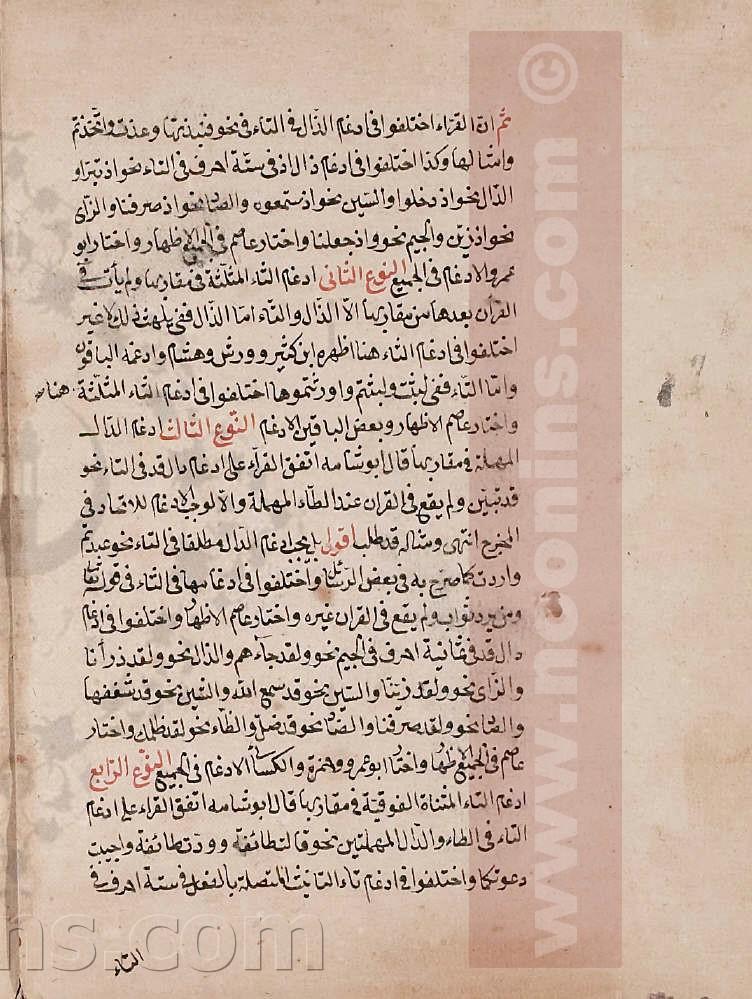 ثم ان القراء اختلفوا فى ادغام الذال فى التاء فى نحو فنبذتها وعذت واتخذتم
وامثالها وكذا اختلفوا فى ادغام ذال اذ فى ستة احرف فى التاء نحو اذ تبرا و
الدال نحو اذ دخلوا والسين نحو اذ سمعتموه والصاد نحو اذ صرفنا والزاى
نحو اذ زين والجيم نحو واذ جعلنا واختار عاصم فى الجميع الاظهار واختار ابو
عمرو الادغام فى الجميع النوع الثانى ادغام الثاء المثلثة فى مقاربها ولم يأت فى
القرآن بعدها من مقاربها الا الذال والتاء اما الذال ففى يلهث ذلك لا غير
اختلفوا فى ادغام الثاء هنا اظهره ابن كثير وورش وهشام وادغمه الباقون
واما التاء ففى لبثت ولبثتم واورثتموها اختلفوا فى ادغام الثاء المثلثة هنا
واختار عاصم الاظهار وبعض الباقين الادغام النوع الثالث ادغام الدال
المهملة فى مقاربها قال ابو شامه اتفق القرآء على ادغام دال قد فى التاء نحو
قد تبين ولم يقع فى القران عند الطاء المهملة والا لوجب الادغام للاتحاد فى
المخرج انتهى ومثاله قد طلب اقول بل يجب ادغام الدال مطلقا فى التاء نحو عبدتم
واردت كما صرح به فى بعض الرسائل واختلفوا فى ادغامها فى الثاء فى قوله تعالى
ومن يرد ثواب ولم يقع فى القران غيره واختار عاصم الاظهار واختلفوا فى ادغام
دال قد فى ثمانية احرف فى الجيم نحو ولقد جاءهم والذال نحو ولقد ذرأنا
والزاى نحو ولقد زينا والسين نحو قد سمع الله والشين نحو قد شغفها
والصاد نحو ولقد صرفنا والضاد نحو قد ضل والظاء نحو لقد ظلمك واختار
عاصم فى الجميع الاظهار واختار ابو عمرو وحمزة والكسائى الادغام فى الجميع النوع الرابع
ادغام التاء المثناة الفوقية فى مقاربها قال ابو شامه اتفق القراء على ادغام
التاء فى الطاء والدال المهملتين نحو قالت طائفة وودت طائفة واجيبت
دعوتكما واختلفوا فى ادغام تاء التانيث المتصلة بالفعل فى ستة احرف فى
الثاء
www.ncoins.com ©
ns.com